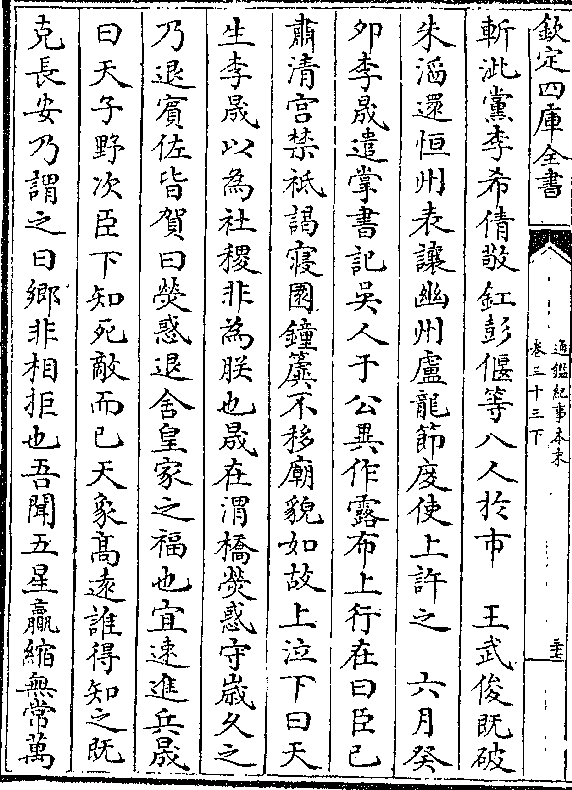 欽定四庫全書
通鑑紀事本末
卷三十三下
斬泚黨李希倩敬釭彭偃等八人於市　王武俊既破
朱滔還恒州表讓幽州盧龍節度使上許之　六月癸
卯李晟遣掌書記吳人于公異作露布上行在曰臣已
肅清宮禁祗謁寢園鐘簴不移廟貌如故上泣下曰天
生李晟以為社稷非為朕也晟在渭橋熒惑守歲久之
乃退賓佐皆賀曰熒惑退舍皇家之福也宜速進兵晟
曰天子野次臣下知死敵而已天象髙遠誰得知之既
克長安乃謂之曰鄉非相拒也吾聞五星贏縮無常萬